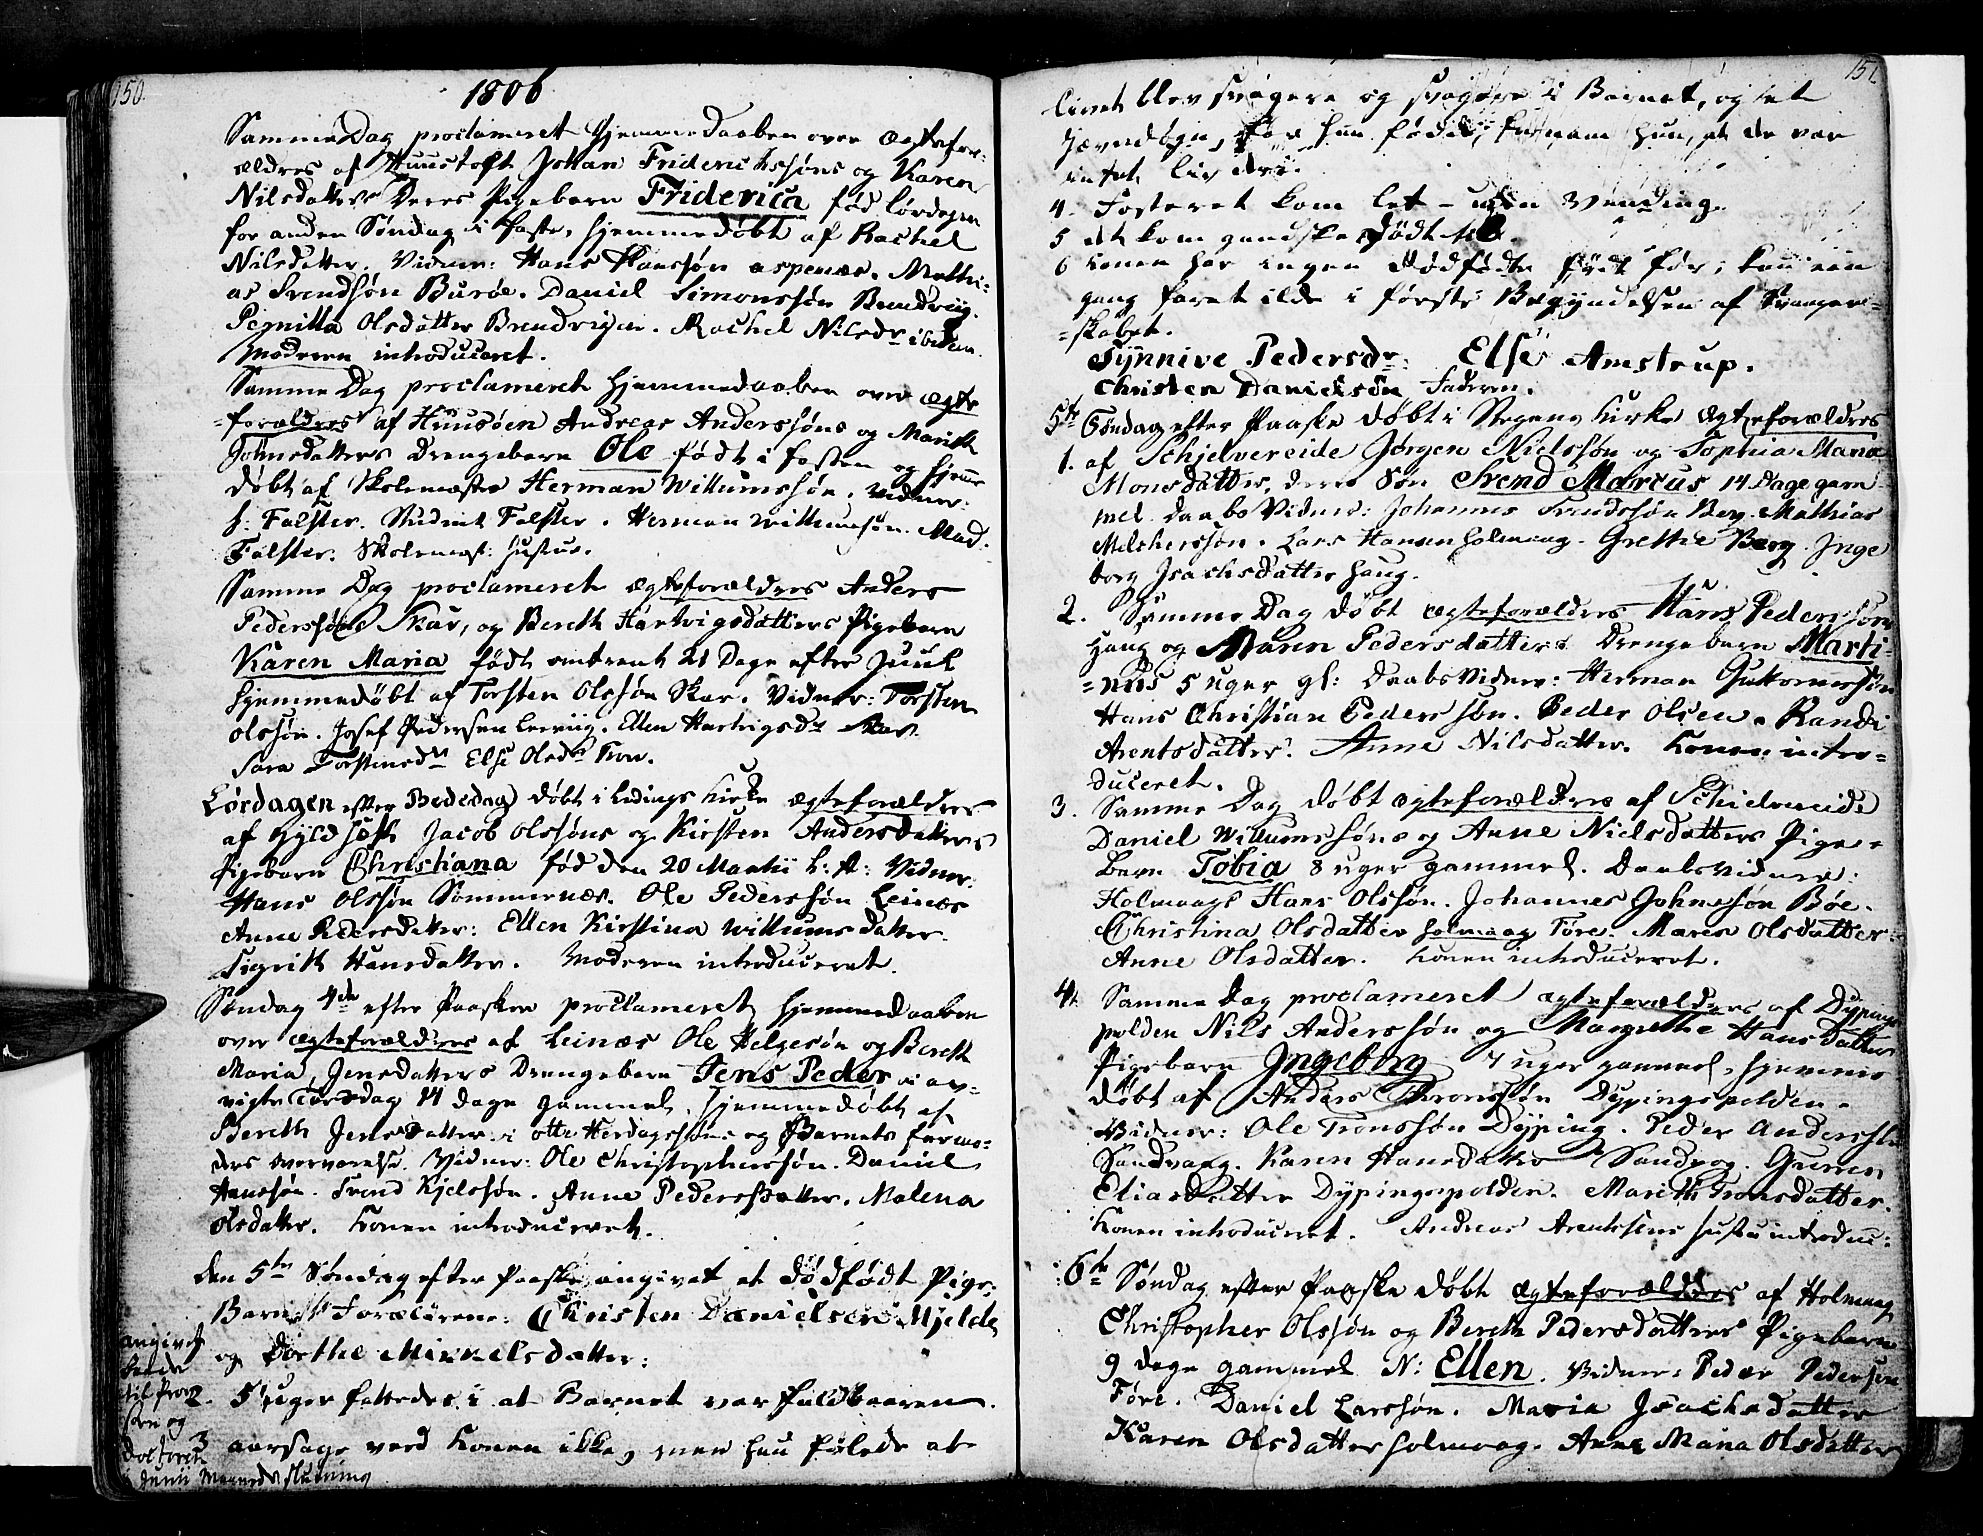 150.
1806
Samme Dag proclameret Hjemmedaaben over Ægtefor-
ældres af Huustoft Johan Friderichssøns og Karen
Nilsdatters Deres Pigebarn Friderica fød Lørdagen
for anden Søndag i Faste, hjemmedøbt af Rachel
Nilsdatter. Vidner: Hans Hanssøn Aspenæs. Matthi-
as Svendsøn Burøe. Daniel Simonssøn Brendvig.
Pernilla Olsdatter Brendvigen. Rachel Nilsdr ibidem.
Moderen introduceret.
Samme Dag proclameret Hjemmedaaben over Ægte
-forældres af Huusøen Andreas Anderssøns og Marith
Johnsdatters Drengebarn Ole født i Fasten og hjemme
døbt af Skolemester Herman Willumssøn. Vidner:
H: Falster. Student Falster. Herman Willumsøn. Mad.
Falster. Skolemest: Hustrue.
Samme Dag proclameret Ægteforældres Anders
Pederssøns Skar, og Bereth Hartvigsdatters Pigebarn
Karen Maria født omtrent 21 Dage efter Juul
hjemmedøbt af Torsten Olssøn Skar. Vidner: Torsten
Olssøn. Josef Pedersen Leiriig. Ellen Hartvigsdr Skar
Sara Torstensdr Else Olsdr Tron.
Lørdagen efter Bededag døbt i Ledings Kirke Ægteforældres
af Gyldhøtt Jacob Olssøns og Kirsten Andersdatters
Pigebarn Christiana fød den 20 Martii h: A: Vidner:
Hans Olssøn Sommernæs. Ole Pederssøn Leinæs
Anne Pedersdatter: Ellen Kirstina Willumsdatter.
Sigrith Hansdatter. Moderen introduceret.
Søndag 4de efter Paasken proclameret Hjemmedaaben
over Ægteforældres af Leinæs Ole Helgesøn og Bereth
Maria Jensdatters Drengebarn Jens Peder i av-
vigte Torsdag 14 dage gammel. Hjemmedøbt af
Bereth Jensdatter i Otte Herdagssøns og Barnets Farmo-
ders Overværelse. Vidner: Ole Christophersøn. Daniel
Hanssøn. Trond Kjelssøn. Anne Pedersdatter. Malena
Olsdatter. Konen introduceret.
den 5te Søndag efter Paaske angivet et dødfødt Pige-
Barn Forældrene: Christen Danielsen Mjelde
og Dorthe Mikkelsdatter:
angivet
til Prov 2. 5 uger fattedes i at Barnet var fuldbaaren.
sten og
Doctoren 3 aarsage veed Konen ikke, men hun følede at
i Junii Maaneds Slutning
151
Livet blev svagere og svagere i Barnet, og et
Jævndøgn, før hun fødte, fornam hun, at der var
intet Liv deri.
4. Fosteret kom let - uden Vending.
5 det kom gandske dødt til.
6 Konen har ingen dødfødte født før; kun een
gang faret ilde i første Begyndelsen af Svanger-
-skabet.
Synnive Pedersdr: Else Amstrup.
Christen Danielsøn Faderen.
5te Søndag efter Paaske døbt i Stegens Kirke Ægteforældres
1. af Schjelvereide Jørgen Nielssøn og Sophia Maria
Monsdatter, deres Søn Svend Marcus 14 Dage gam-
mel. Daabs Vidner: Johannes Svendssøn Berg. Mathias
Melchersøn. Lars Hansen Holmaag. Grethe Berg. Inge
borg Isachsdatter Haug.
2. Samme Dag døbt Ægteforældres Hans Pederssøns
Haug og Maren Pedersdatters Drengebarn Marti-
-nus 5 uger gl: Daabs Vidner: Herman Guttormssøn
Hans Christian Pederssøn. Peder Olsen. Randi
Arentsdatter. Anne Nilsdatter. Konen intro-
duceret.
3. Samme Dag døbt Ægteforældres af Schielvereide
Daniel Willumssøns og Anne Nielsdatters Pige-
barn Tobia 8 uger gammel. Daabsvidner:
Holmaags Hans Olssøn. Johannes Johnsøn Bøe.
Christina Olsdatter Holmaag Føre. Maren Olsdatter
Anne Olsdatter. Konen introduceret.
4. Samme Dag proclameret Ægteforældres af Dypings
polden Nils Anderssøn og Margrethe Hansdatters
Pigebarn Ingeborg 7 uger gammel, hjemme
døbt af Anders Tronssøn Dypingspolden.
Vidner: Ole Tronssøn Dyping. Peder Anderssøn
Sandvaag. Karen Hansdatter Sandvog. Guren
Eliasdatter Dypingspolden. Marith Tronsdatter.
Konen introduceret. Andreas Arentsens Hustru introduc:
6te Søndag efter Paaske døbt Ægteforældres af Holmaag
Christopher Olssøn og Bereth Pedersdatters Pigebarn
9 dage gammel N: Ellen. Vidner: Peder Pedersøn
Føre. Daniel Larssøn. Maria Isachsdatter
Karen Olsdatter Holmaag. Anne Maria Olsdatter